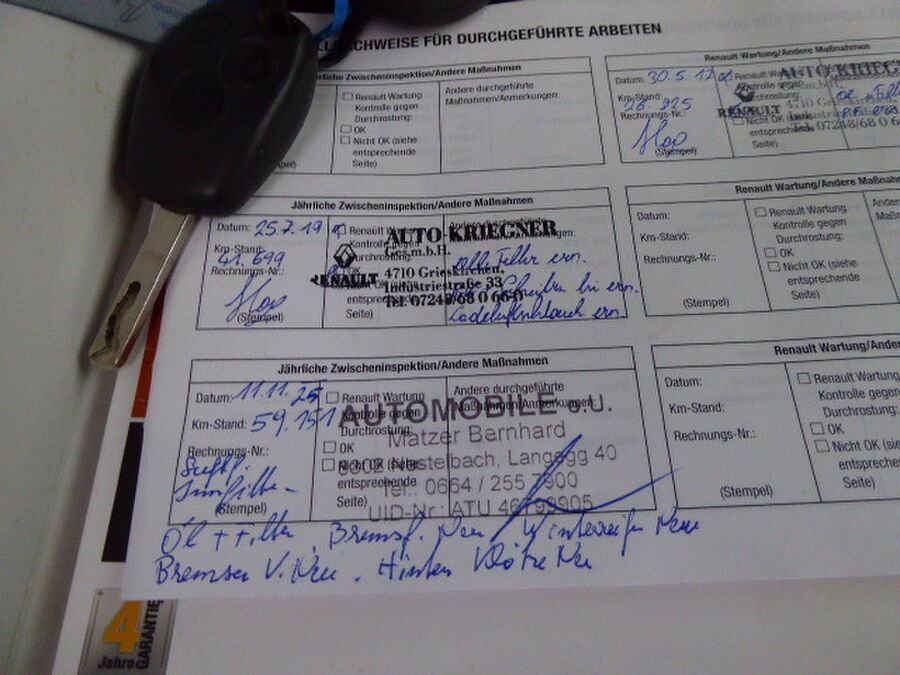 FÜR DURCHGEFÜHRTE ARBEITEN
Zwischeninspektion/Andere Maßnahmen
Renault Wartung
Kontrolle gegen
Durchrostung:
OK
Nicht OK (siehe
entsprechende
Seite)
Andere durchgeführte
Maßnahmen/Anmerkungen:
(Stempel)
Renault Wartung/Andere Maßnahmen
Datum: 30.5.17
Km-Stand:
26 825
Rechnungs-Nr.:
(Stempel)
Renault Wartung
Nicht OK
entsprechende
Seite)
AUTO-KRIEGNER
RENAULT
4710 Grieskirchen
Industriestraße
Tel. 07248/68 0 66
Jährliche Zwischeninspektion/Andere Maßnahmen
Datum: 25.7.19
Km-Stand:
41.699
Rechnungs-Nr.:
(Stempel)
Renault Wartung
Kontrolle gegen
Durchrostung:
OK
Nicht OK (siehe
entsprechende
Seite)
Andere durchgeführte
AUTO-KRIEGNER
Ges.m.b.H.
RENAULT
4710 Grieskirchen,
Industriestraße 33
Tel. 07248/68 0 66-0
Filter ern.
Ladeluftschlauch ern.
Renault Wartung/Andere Maßnahmen
Datum:
Km-Stand:
Rechnungs-Nr.:
(Stempel)
Renault Wartung
Kontrolle gegen
Durchrostung:
OK
Nicht OK (siehe
entsprechende
Seite)
Jährliche Zwischeninspektion/Andere Maßnahmen
Datum: 11.11.25
Km-Stand: 59.151
Rechnungs-Nr.:
(Stempel)
Renault Wartung
Kontrolle gegen
Durchrostung:
OK
Nicht OK (siehe
entsprechende
Seite)
Andere durchgeführte
Maßnahmen/Anmerkungen:
AUTOMOBILE e.U.
Matzer Bernhard
Nestelbach, Langegg 40
Tel.: 0664 / 255 7900
UID-Nr.: ATU
Renault Wartung/Andere
Datum:
Km-Stand:
Rechnungs-Nr.:
(Stempel)
Renault Wartung
Kontrolle gegen
Durchrostung:
OK
Nicht OK (siehe
entsprechende
Seite)
Öl + Filter, Bremsf. Neu Winterreifen Neu
Bremsen V. Neu. Hinten Klötze Neu
4
Jahre
GARANTIE